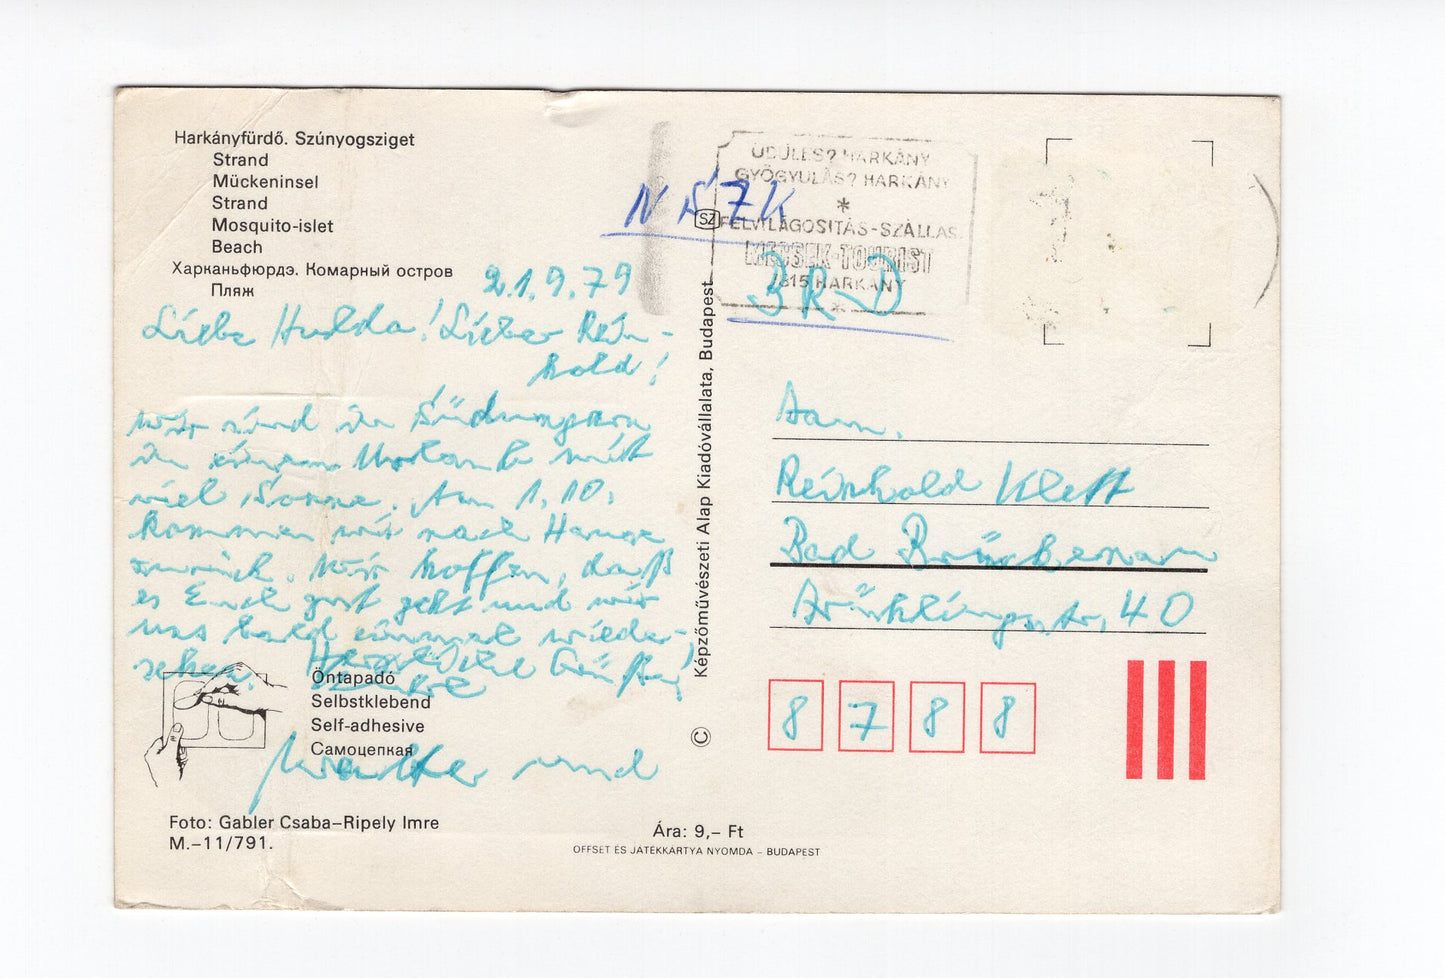 Harkányfürdő. Szúnyogsziget
Strand
Mückeninsel
Strand
Mosquito-islet
Beach
Харканьфюрдэ. Комарный остров
Пляж
21.9.79
Liebe Hulda! Lieber Rein-
hold!
wir sind in Südungarn
in einem Urlaub mit
viel Sonne. Am 1.10.
kommen wir nach Hause
zurück. Wir hoffen, daß
es Euch gut geht und wir
uns bald einmal wieder-
sehen. Herzliche Grüße!
Walter und
Öntapadó
Selbstklebend
Self-adhesive
Самоцепкая
Foto: Gabler Csaba–Ripely Imre
M.–11/791.
Ára: 9,– Ft
OFFSET ÉS JÁTÉKKÁRTYA NYOMDA – BUDAPEST
© Képzőművészeti Alap Kiadóvállalata, Budapest
SZ
ÜDÜLÉS? HARKÁNY
GYÓGYULÁS? HARKÁNY
*
FELVILÁGOSITÁS-SZÁLLÁS
MECSEK-TOURIST
7815 HARKÁNY
*
NSZK
BRD
Fam.
Reinhold Klett
Bad Brückenau
Frühlingstr. 40
8 7 8 8